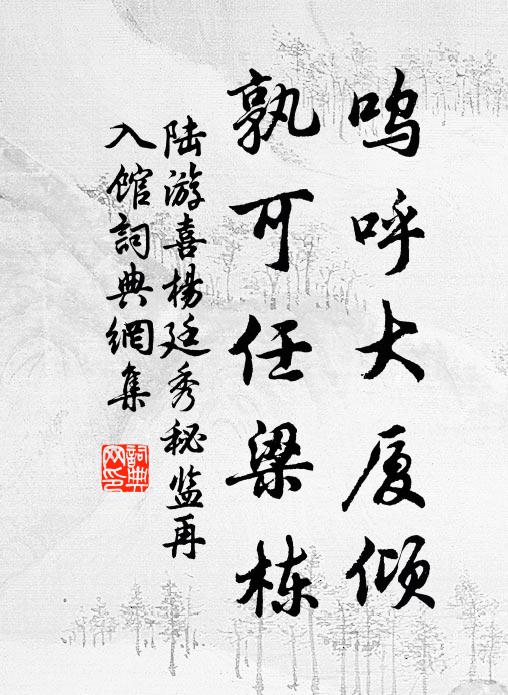 呜呼大厦倾
孰可任梁栋
陆游喜杨廷秀秘监再
入馆詞典網集
詞典网印